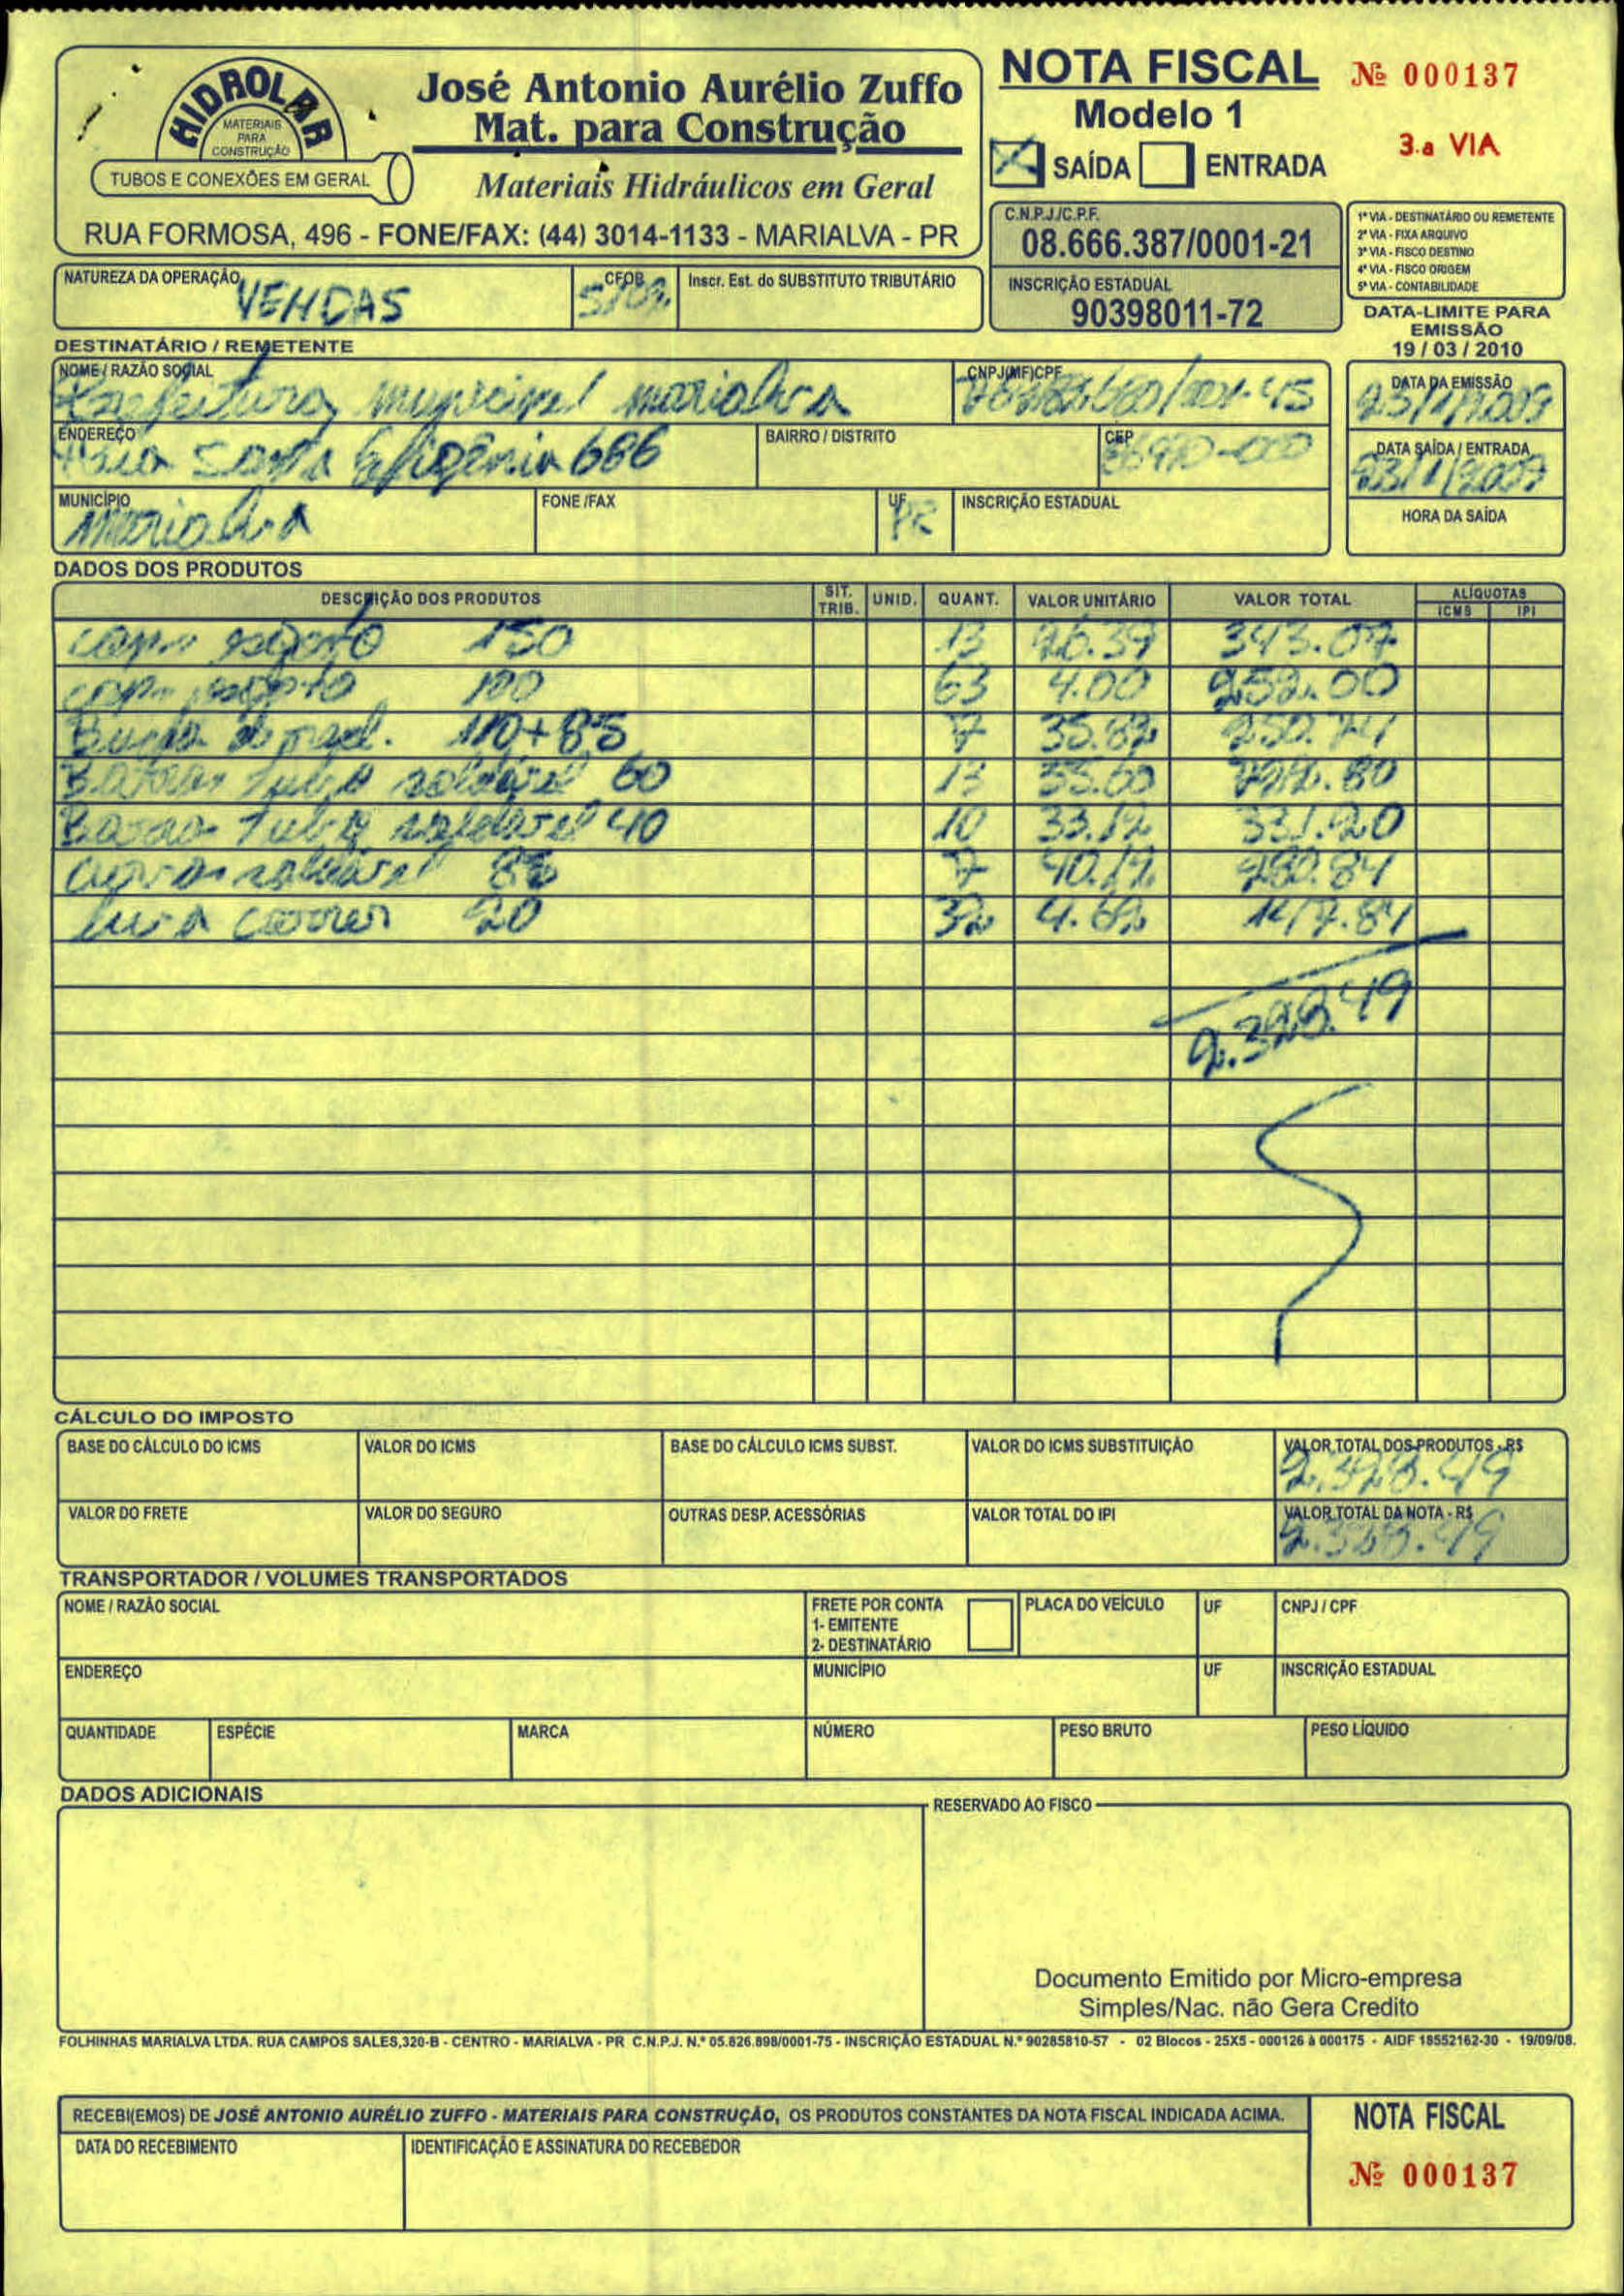 HIDROLAR
MATERIAIS
PARA
CONSTRUÇÃO
TUBOS E CONEXÕES EM GERAL
José Antonio Aurélio Zuffo
Mat. para Construção
Materiais Hidráulicos em Geral
RUA FORMOSA, 496 - FONE/FAX: (44) 3014-1133 - MARIALVA - PR
NOTA FISCAL
Nº 000137
Modelo 1
3.a VIA
SAÍDA ENTRADA
C.N.P.J./C.P.F.
08.666.387/0001-21
INSCRIÇÃO ESTADUAL
90398011-72
1ª VIA - DESTINATÁRIO OU REMETENTE
2ª VIA - FIXA ARQUIVO
3ª VIA - FISCO DESTINO
4ª VIA - FISCO ORIGEM
5ª VIA - CONTABILIDADE
DATA-LIMITE PARA
EMISSÃO
19 / 03 / 2010
NATUREZA DA OPERAÇÃO
VENDAS
CFOB
Inscr. Est. do SUBSTITUTO TRIBUTÁRIO
DESTINATÁRIO / REMETENTE
NOME / RAZÃO SOCIAL
Prefeitura municipal marialva
CNPJ(MF)CPF
DATA DA EMISSÃO
ENDEREÇO
Rua Santa Efigenia 686
BAIRRO / DISTRITO
CEP
86990-000
DATA SAÍDA / ENTRADA
MUNICÍPIO
marialva
FONE /FAX
UF
PR
INSCRIÇÃO ESTADUAL
HORA DA SAÍDA
DADOS DOS PRODUTOS
DESCRIÇÃO DOS PRODUTOS SIT. TRIB. UNID. QUANT. VALOR UNITÁRIO VALOR TOTAL ALÍQUOTAS ICMS IPI
esgoto 150 13 26.39 343.07
esgoto 100 63 4.00 252.00
Bucha de 110+85 7 35.82 250.74
Barras Tubo soldavel 60 13 55.60 722.80
Barras Tubo soldavel 40 10 33.12 331.20
soldavel 85 7 40.12 280.84
luva correr 20 32 4.62 147.84
2.328.49
CÁLCULO DO IMPOSTO
BASE DO CÁLCULO DO ICMS
VALOR DO ICMS
BASE DO CÁLCULO ICMS SUBST.
VALOR DO ICMS SUBSTITUIÇÃO
VALOR TOTAL DOS PRODUTOS - R$
2.328.49
VALOR DO FRETE
VALOR DO SEGURO
OUTRAS DESP. ACESSÓRIAS
VALOR TOTAL DO IPI
VALOR TOTAL DA NOTA - R$
2.328.49
TRANSPORTADOR / VOLUMES TRANSPORTADOS
NOME / RAZÃO SOCIAL
FRETE POR CONTA
1- EMITENTE
2- DESTINATÁRIO
PLACA DO VEÍCULO
UF
CNPJ / CPF
ENDEREÇO
MUNICÍPIO
UF
INSCRIÇÃO ESTADUAL
QUANTIDADE
ESPÉCIE
MARCA
NÚMERO
PESO BRUTO
PESO LÍQUIDO
DADOS ADICIONAIS
RESERVADO AO FISCO
Documento Emitido por Micro-empresa
Simples/Nac. não Gera Credito
FOLHINHAS MARIALVA LTDA. RUA CAMPOS SALES,320-B - CENTRO - MARIALVA - PR C.N.P.J. N.º 05.826.898/0001-75 - INSCRIÇÃO ESTADUAL N.º 90285810-57 - 02 Blocos - 25X5 - 000126 à 000175 - AIDF 18552162-30 - 19/09/08.
RECEBI(EMOS) DE JOSÉ ANTONIO AURÉLIO ZUFFO - MATERIAIS PARA CONSTRUÇÃO, OS PRODUTOS CONSTANTES DA NOTA FISCAL INDICADA ACIMA.
DATA DO RECEBIMENTO
IDENTIFICAÇÃO E ASSINATURA DO RECEBEDOR
NOTA FISCAL
Nº 000137